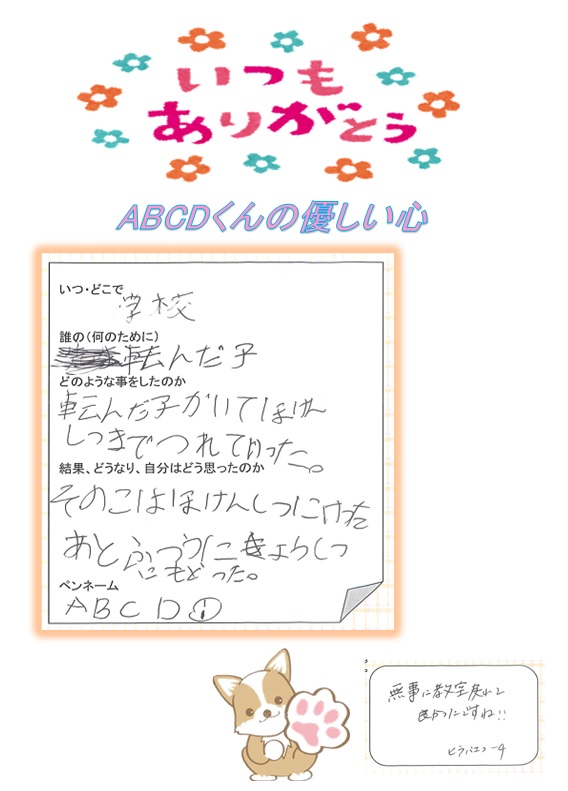 いつも
ありがとう
ABCDくんの優しい心
いつ・どこで
学校
誰の(何のために)
転んだ子
どのような事をしたのか
転んだ子がいてほけん
しつまでつれて行った。
結果、どうなり、自分はどう思ったのか
そのこはほけんしつにいった
あとふつうにきょうしつ
にもどった。
ペンネーム
ABCD①
無事に教室戻れて
良かったですね!!